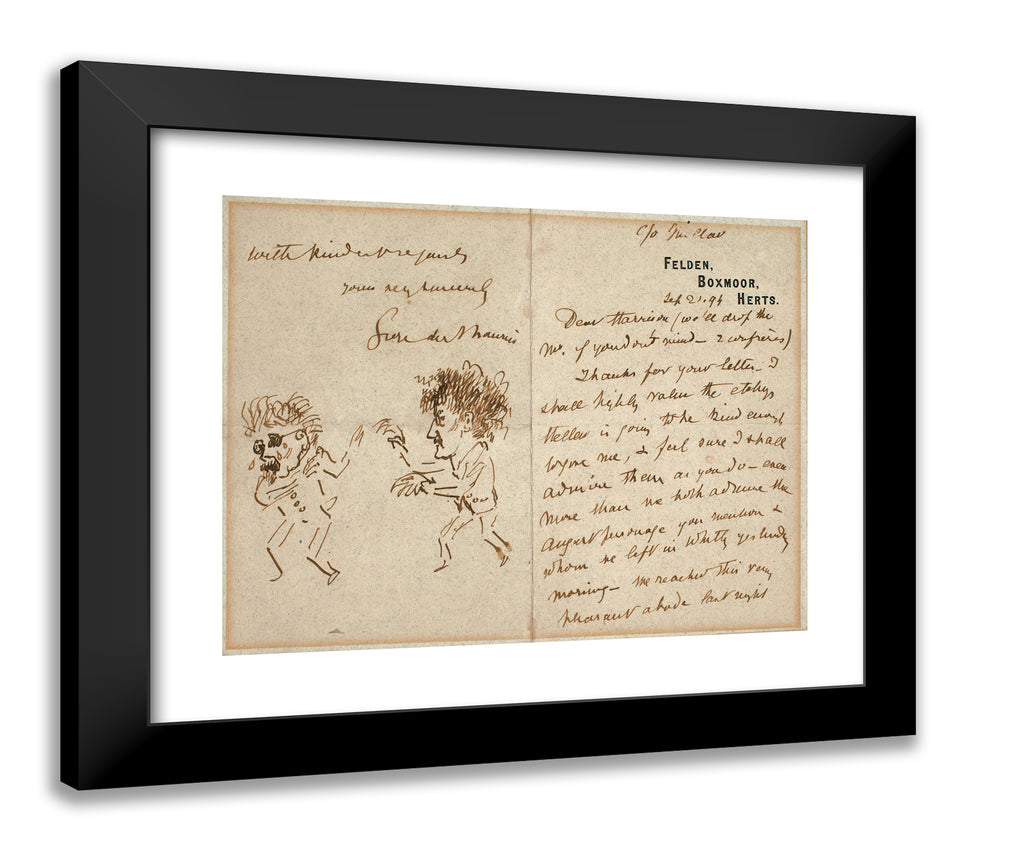 with kindest regards
yours very sincerely
George du Maurier
c/o
FELDEN,
BOXMOOR,
HERTS.
Sep 21. 94
Dear Harrison (we'll drop the
Mr. if you don't mind – 2 confrères)
Thanks for your letter – I
shall highly value the etchgs
Helleu is going to be kind enough
to give me, & feel sure I shall
admire them as you do – even
more than we both admire the
august personage you mention &
whom we left in Whitby yesterday
morning – We reached this very
pleasant abode last night